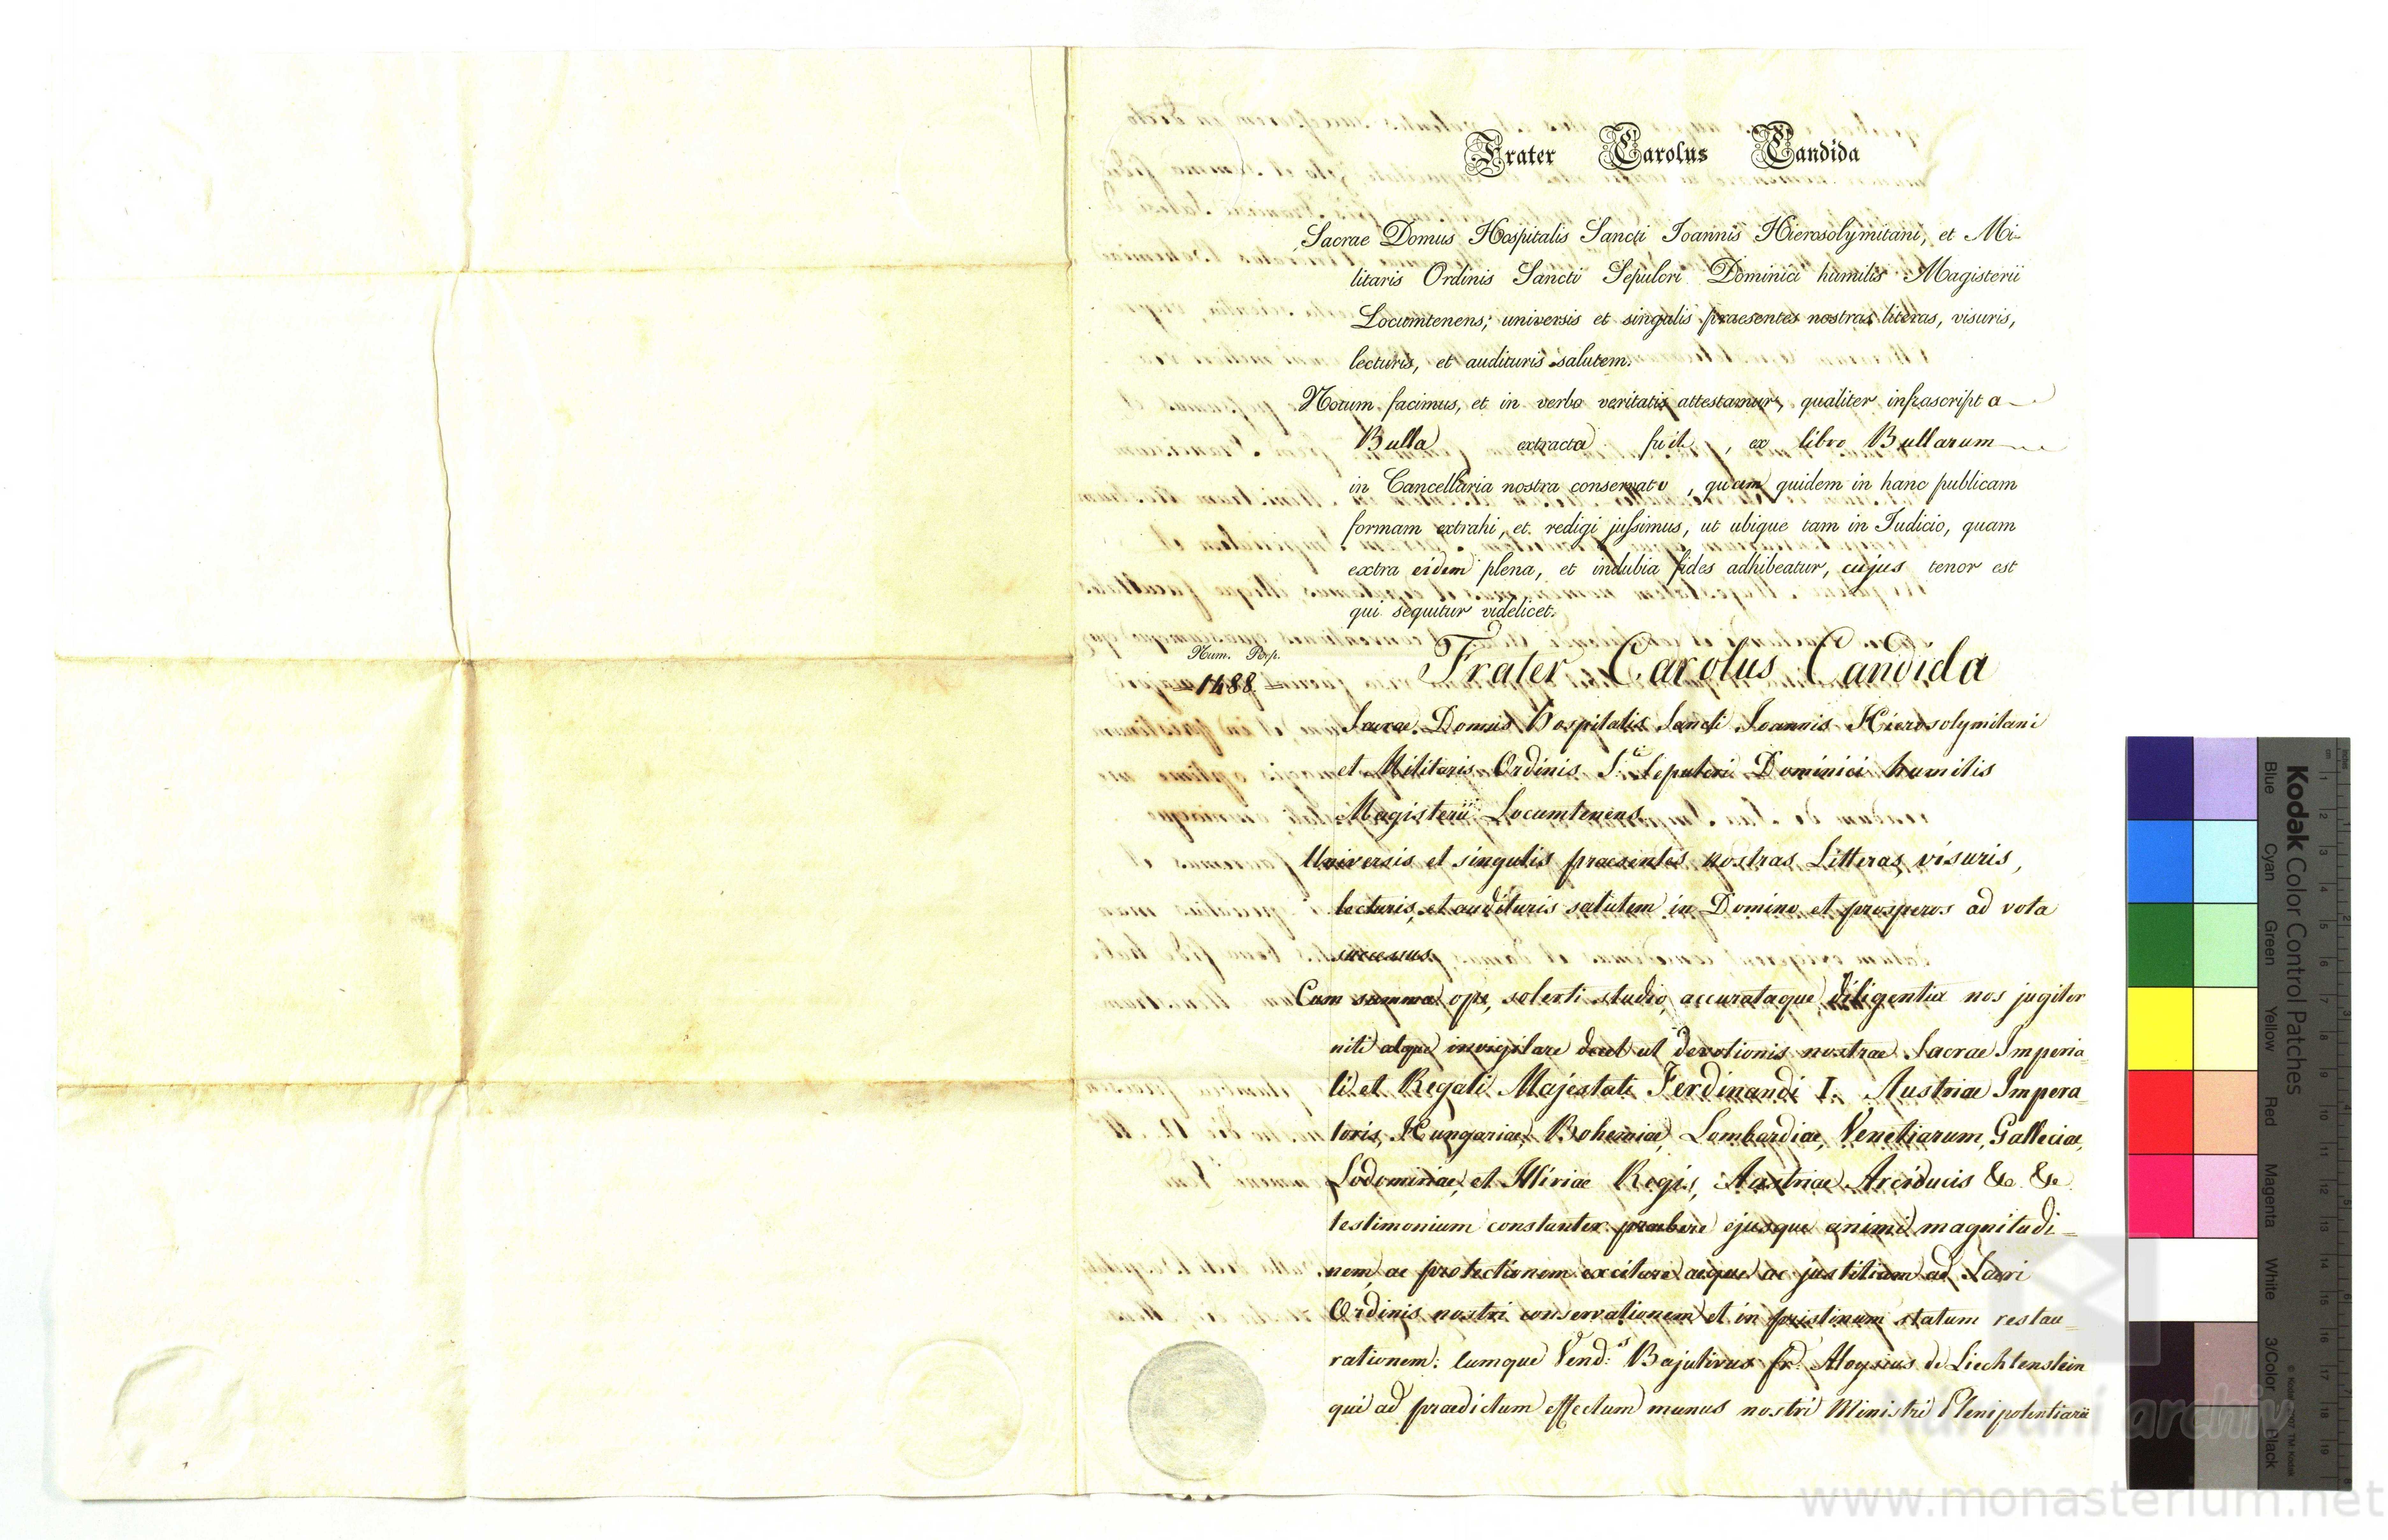 Frater Carolus Candida
Sacrae Domus Hospitalis Sancti Joannis Hierosolymitani, et Mi-
litaris Ordinis Sancti Sepulcri Dominici humilis Magisterii
Locumtenens; universis et singulis praesentes nostras literas, visuris,
lecturis, et audituris salutem.
Notum facimus, et in verbo veritatis attestamur, qualiter infrascripta
Bulla extracta fuit, ex libro Bullarum
in Cancellaria nostra conservato, quam quidem in hanc publicam
formam extrahi, et redigi jussimus, ut ubique tam in Judicio, quam
extra eidem plena, et indubia fides adhibeatur, cujus tenor est
qui sequitur videlicet.
Num. Perp.
1488
Frater Carolus Candida
Sacrae Domus Hospitalis Sancti Joannis Hierosolymitani
et Militaris Ordinis S.ti Sepulcri Dominici humilis
Magisterii Locumtenens
Universis et singulis praesentes nostras Litteras visuris,
lecturis, et audituris salutem in Domino et prosperos ad vota
successus
Cum summa ope, solerti studio, accurataque diligentia nos jugiter
niti atque invigilare decet ut devotionis nostrae Sacrae Imperia=
li et Regali Majestati Ferdinandi I. Austriae Impera=
toris, Hungariae, Bohemiae, Lombardiae, Venetiarum, Galleciae,
Lodomiriae, et Illiriae Regis, Austriae Arciducis &c. &c.
testimonium constanter praebere ejusque animi magnitudi=
nem, ac protectionem excitare aeque ac justitiam ad Sacri
Ordinis nostri conservationem et in pristinum statum restau=
rationem: Cumque Vend:s Bajulivus fr. Aloysius de Liechtenstein
qui ad praedictum effectum munus nostri Ministri Plenipotentiarii
Kodak Color Control Patches
Blue Cyan Green Yellow Red Magenta White 3/Color Black
Národní archiv
www.monasterium.net